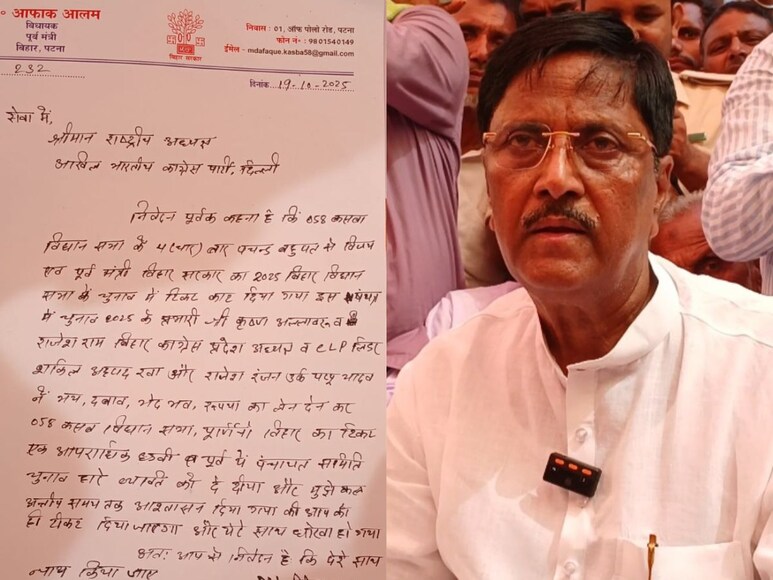 ० आफाक आलम
विधायक
पूर्व मंत्री
बिहार, पटना
बिहार सरकार
निवास : 01, ऑफ पोलो रोड, पटना
फोन नं० : 9801540149
ईमेल - mdafaque.kasba58@gmail.com
232
दिनांक 19.10.2025
सेवा में,
श्रीमान राष्ट्रीय अध्यक्ष
अखिल भारतीय कांग्रेस पार्टी, दिल्ली
निवेदन पूर्वक कहना है कि 058 कसबा
विधान सभा के 4 (चार) बार प्रचन्ड बहुमत से विजय
एवं पूर्व मंत्री बिहार सरकार का 2025 बिहार विधान
सभा के चुनाव में टिकट काट दिया गया इस संबंध
में चुनाव 2025 के प्रभारी श्री कृष्णा अल्लावरू व
राजेश राम बिहार कांग्रेस प्रदेश अध्यक्ष व CLP लिडर
शकिल अहमद खां और राजेश रंजन उर्फ पप्पू यादव
ने भय, दबाव, भेद भव, रूपया का लेन देन कर
058 कसबा विधान सभा, पूर्णियाँ बिहार का टिकट
एक आपराधिक छवी व पूर्व में पंचायत समिति
चुनाव हारे व्यक्ति को दे दीया और मुझे
अन्तीम समय तक आश्वासन दिया गया की आप को
ही टीकट दिया जाएगा और मेरे साथ धोखा हो गया
अतः आप से निवेदन है कि मेरे साथ
न्याय किया जाए